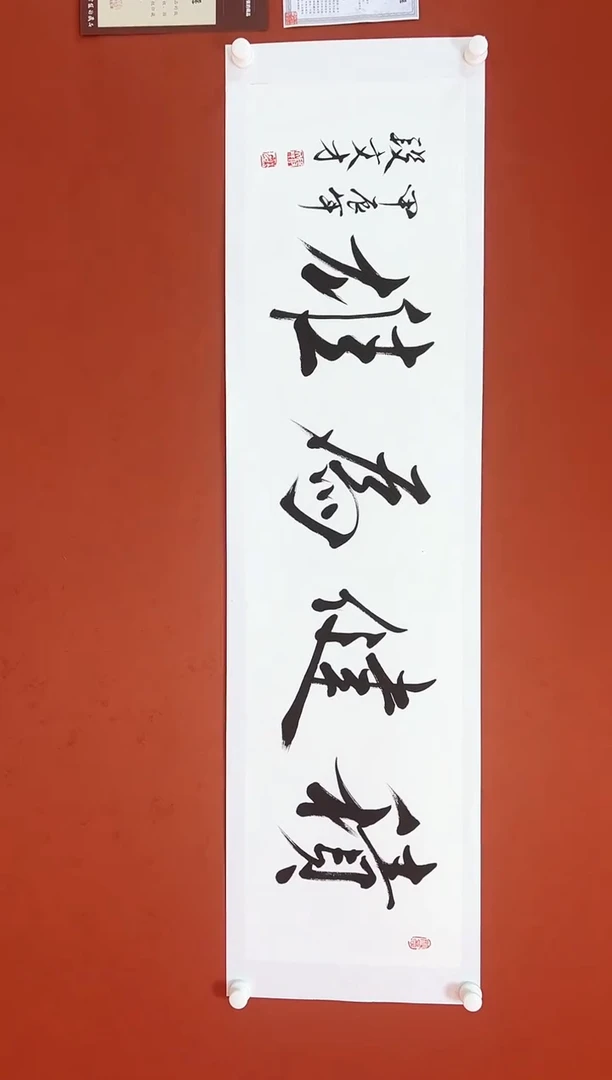 積健為雄
甲辰年
段文才